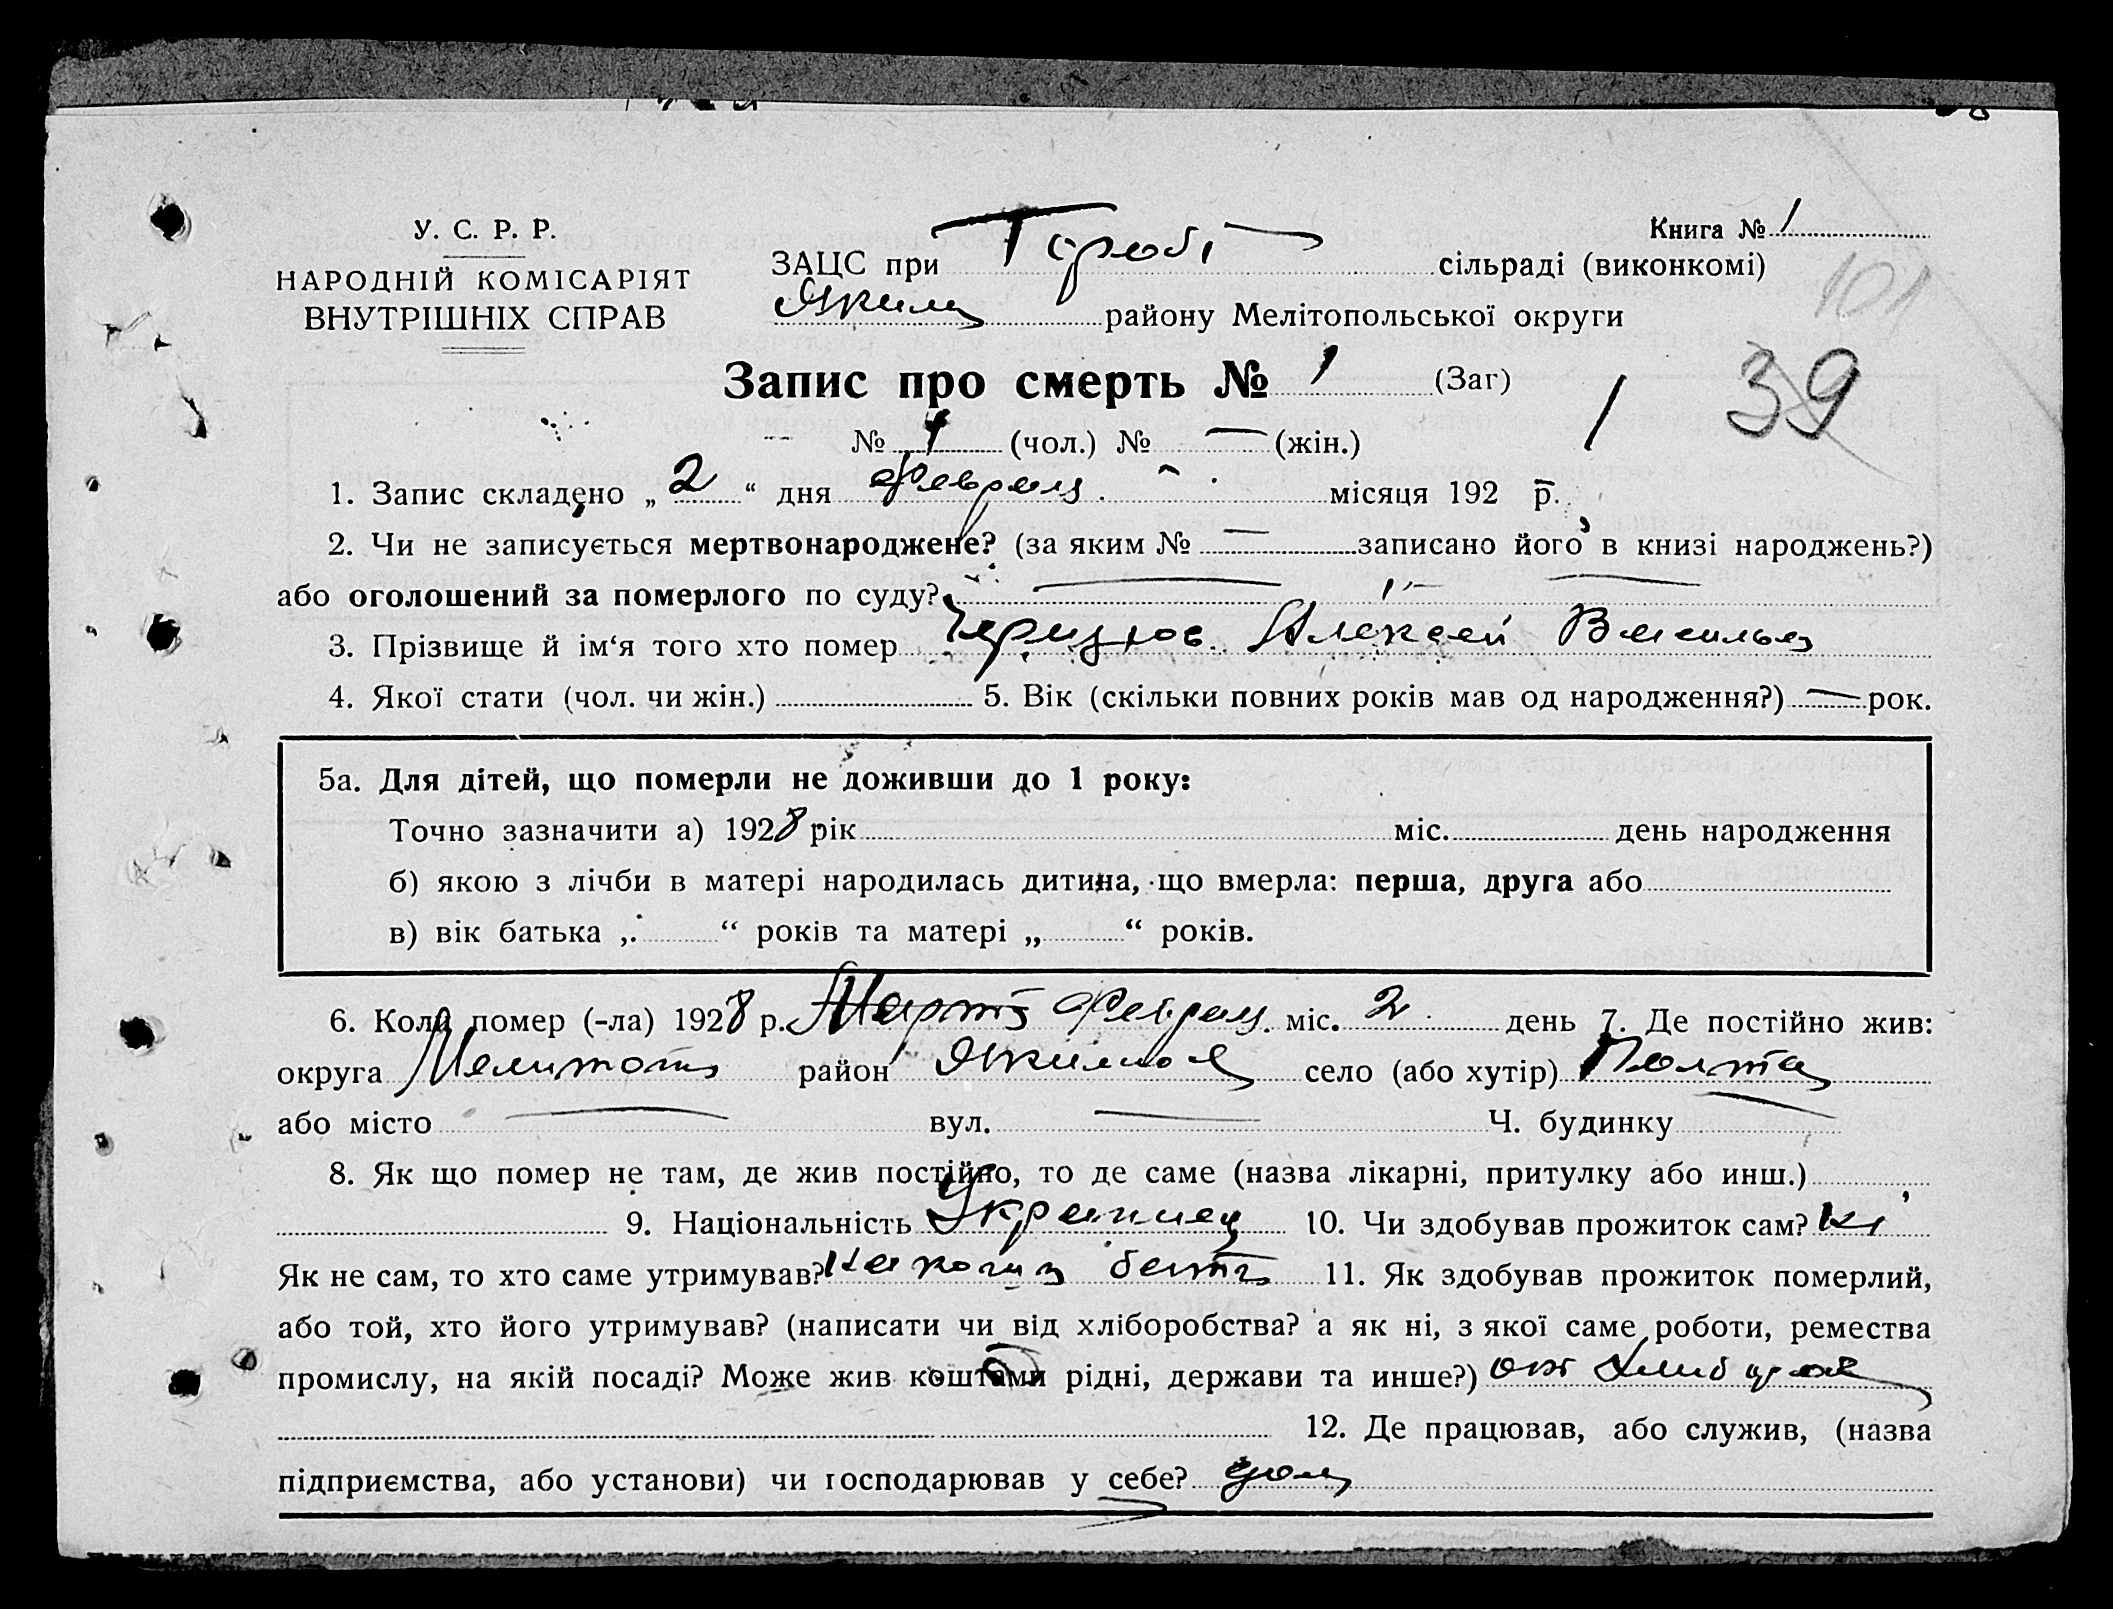 У. С. Р. Р.
НАРОДНІЙ КОМІСАРІЯТ
ВНУТРІШНІХ СПРАВ
Книга № 1
ЗАЦС при сільраді (виконкомі)
101
Яким району Мелітопольської округи
Запис про смерть № 1 (Заг)
1 39
№ 1 (чол.) № — (жін.)
1. Запис складено „ 2 “ дня Февраля місяця 192 р.
2. Чи не записується мертвонароджене? (за яким № — записано його в книзі народжень?)
або оголошений за померлого по суду? —
3. Прізвище й ім‘я того хто помер Алексей
4. Якої стати (чол. чи жін.) 5. Вік (скільки повних років мав од народження?) — рок.
5а. Для дітей, що померли не доживши до 1 року:
Точно зазначити а) 1928 рік міс. день народження
б) якою з лічби в матері народилась дитина, що вмерла: перша, друга або
в) вік батька „ “ років та матері „ “ років.
6. Коли помер (-ла) 1928 р. Март Феврал міс. 2 день 7. Де постійно жив:
округа Мелитоп район село (або хутір)
або місто — вул. — Ч. будинку
8. Як що помер не там, де жив постійно, то де саме (назва лікарні, притулку або инш.)
9. Національність Украинец 10. Чи здобував прожиток сам?
Як не сам, то хто саме утримував? 11. Як здобував прожиток померлий,
або той, хто його утримував? (написати чи від хліборобства? а як ні, з якої саме роботи, ремества
промислу, на якій посаді? Може жив коштами рідні, держави та инше?) от
12. Де працював, або служив, (назва
підприємства, або установи) чи господарював у себе?